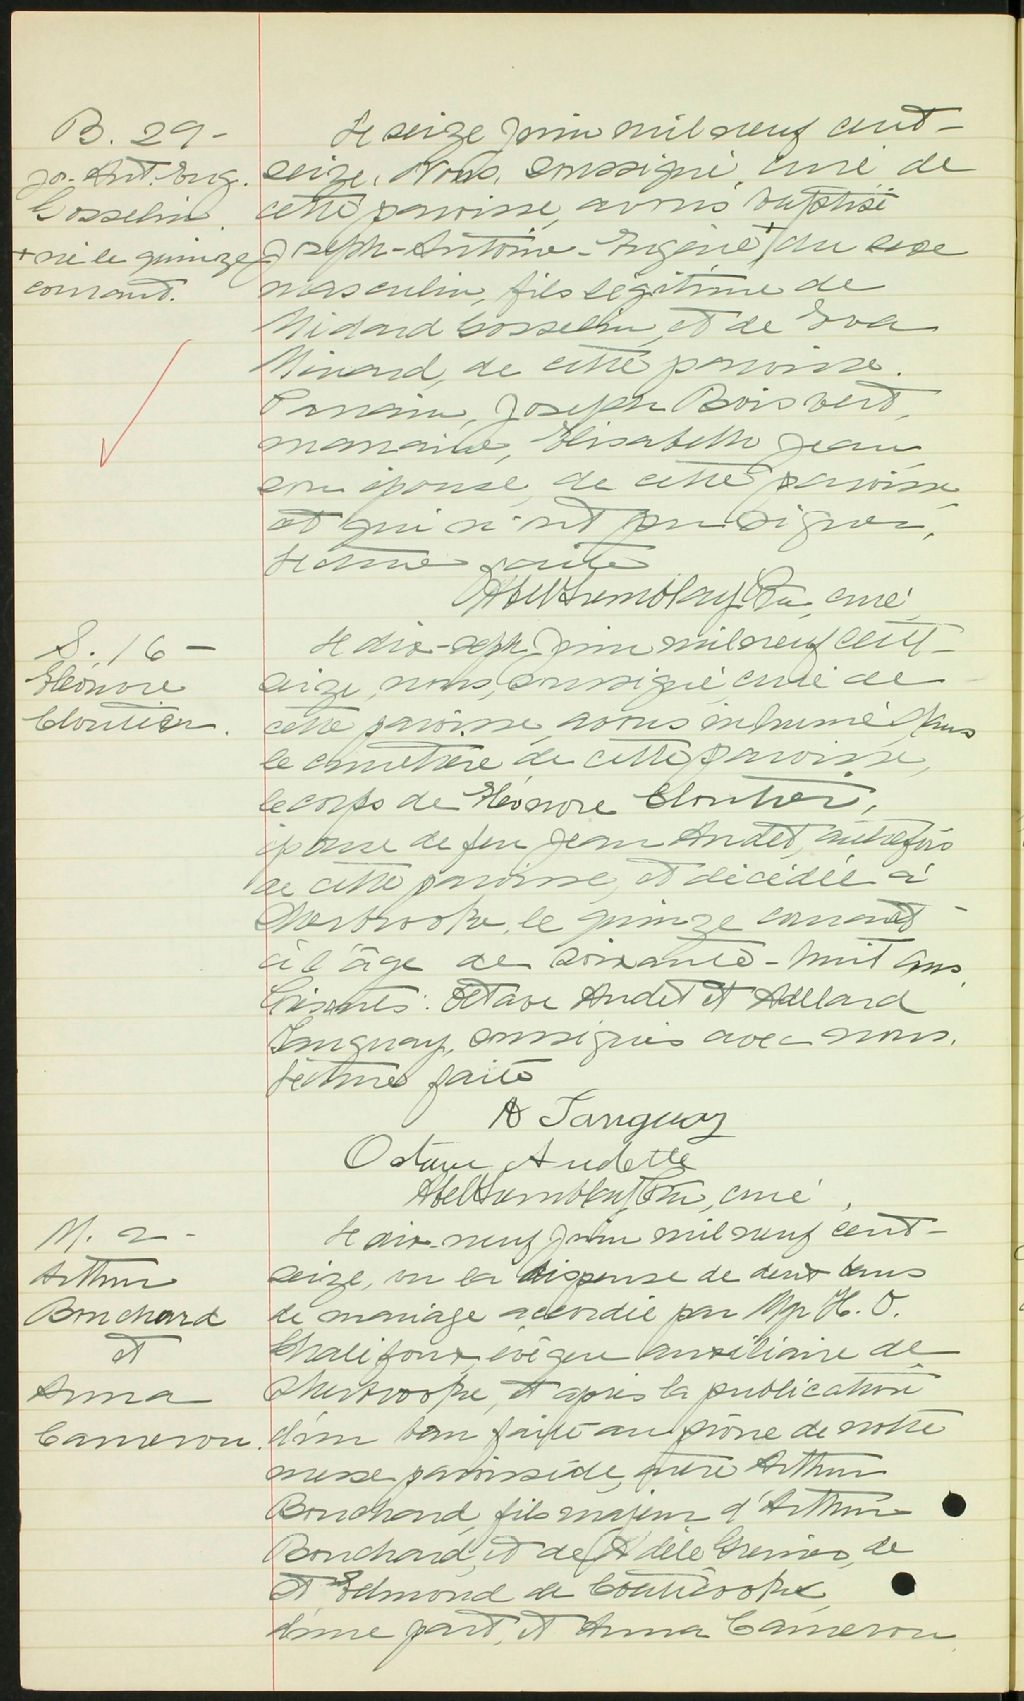 B. 29-
Jos. Ant. Eug.
Gosselin
+ né le quinze
courant.
Le seize juin mil neuf cent-
seize, Nous, soussigné, curé de
cette paroisse, avons baptisé
Joseph-Antoine-Eugène + du sexe
masculin, fils légitime de
Médard Gosselin, et de Eva
Minard, de cette paroisse.
Parrain, Joseph Boisvert,
marraine, Elisabeth Jean
son épouse, de cette paroisse
et qui n'ont pu signer,
Lecture faite
Abel Tremblay Ptre, curé
S. 16-
Eléonore
Cloutier.
Le dix-sept juin mil neuf cent-
seize, nous, soussigné curé de
cette paroisse, avons inhumé dans
le cimetière de cette paroisse,
le corps de Eléonore Cloutier,
épouse de feu Jean Audet, autrefois
de cette paroisse, et décédée à
Sherbrooke, le quinze courant
à l'âge de soixante-huit ans.
Présents: Octave Audet et Adélard
Tanguay, soussignés avec nous.
Lecture faite
A Tanguay
Octave Audette
Abel Tremblay Ptre, curé
M. 2-
Arthur
Bouchard
et
Anna
Cameron.
Le dix-neuf juin mil neuf cent-
seize, vu la dispense de deux bans
de mariage accordée par Mgr H. O.
Chalifoux, évêque auxiliaire de
Sherbrooke, et après la publication
d'un ban faite au prône de notre
messe paroissiale, entre Arthur
Bouchard, fils majeur d'Arthur
Bouchard, et de Adèle Grenier, de
St Edmond de Coaticooke,
d'une part, et Anna Cameron